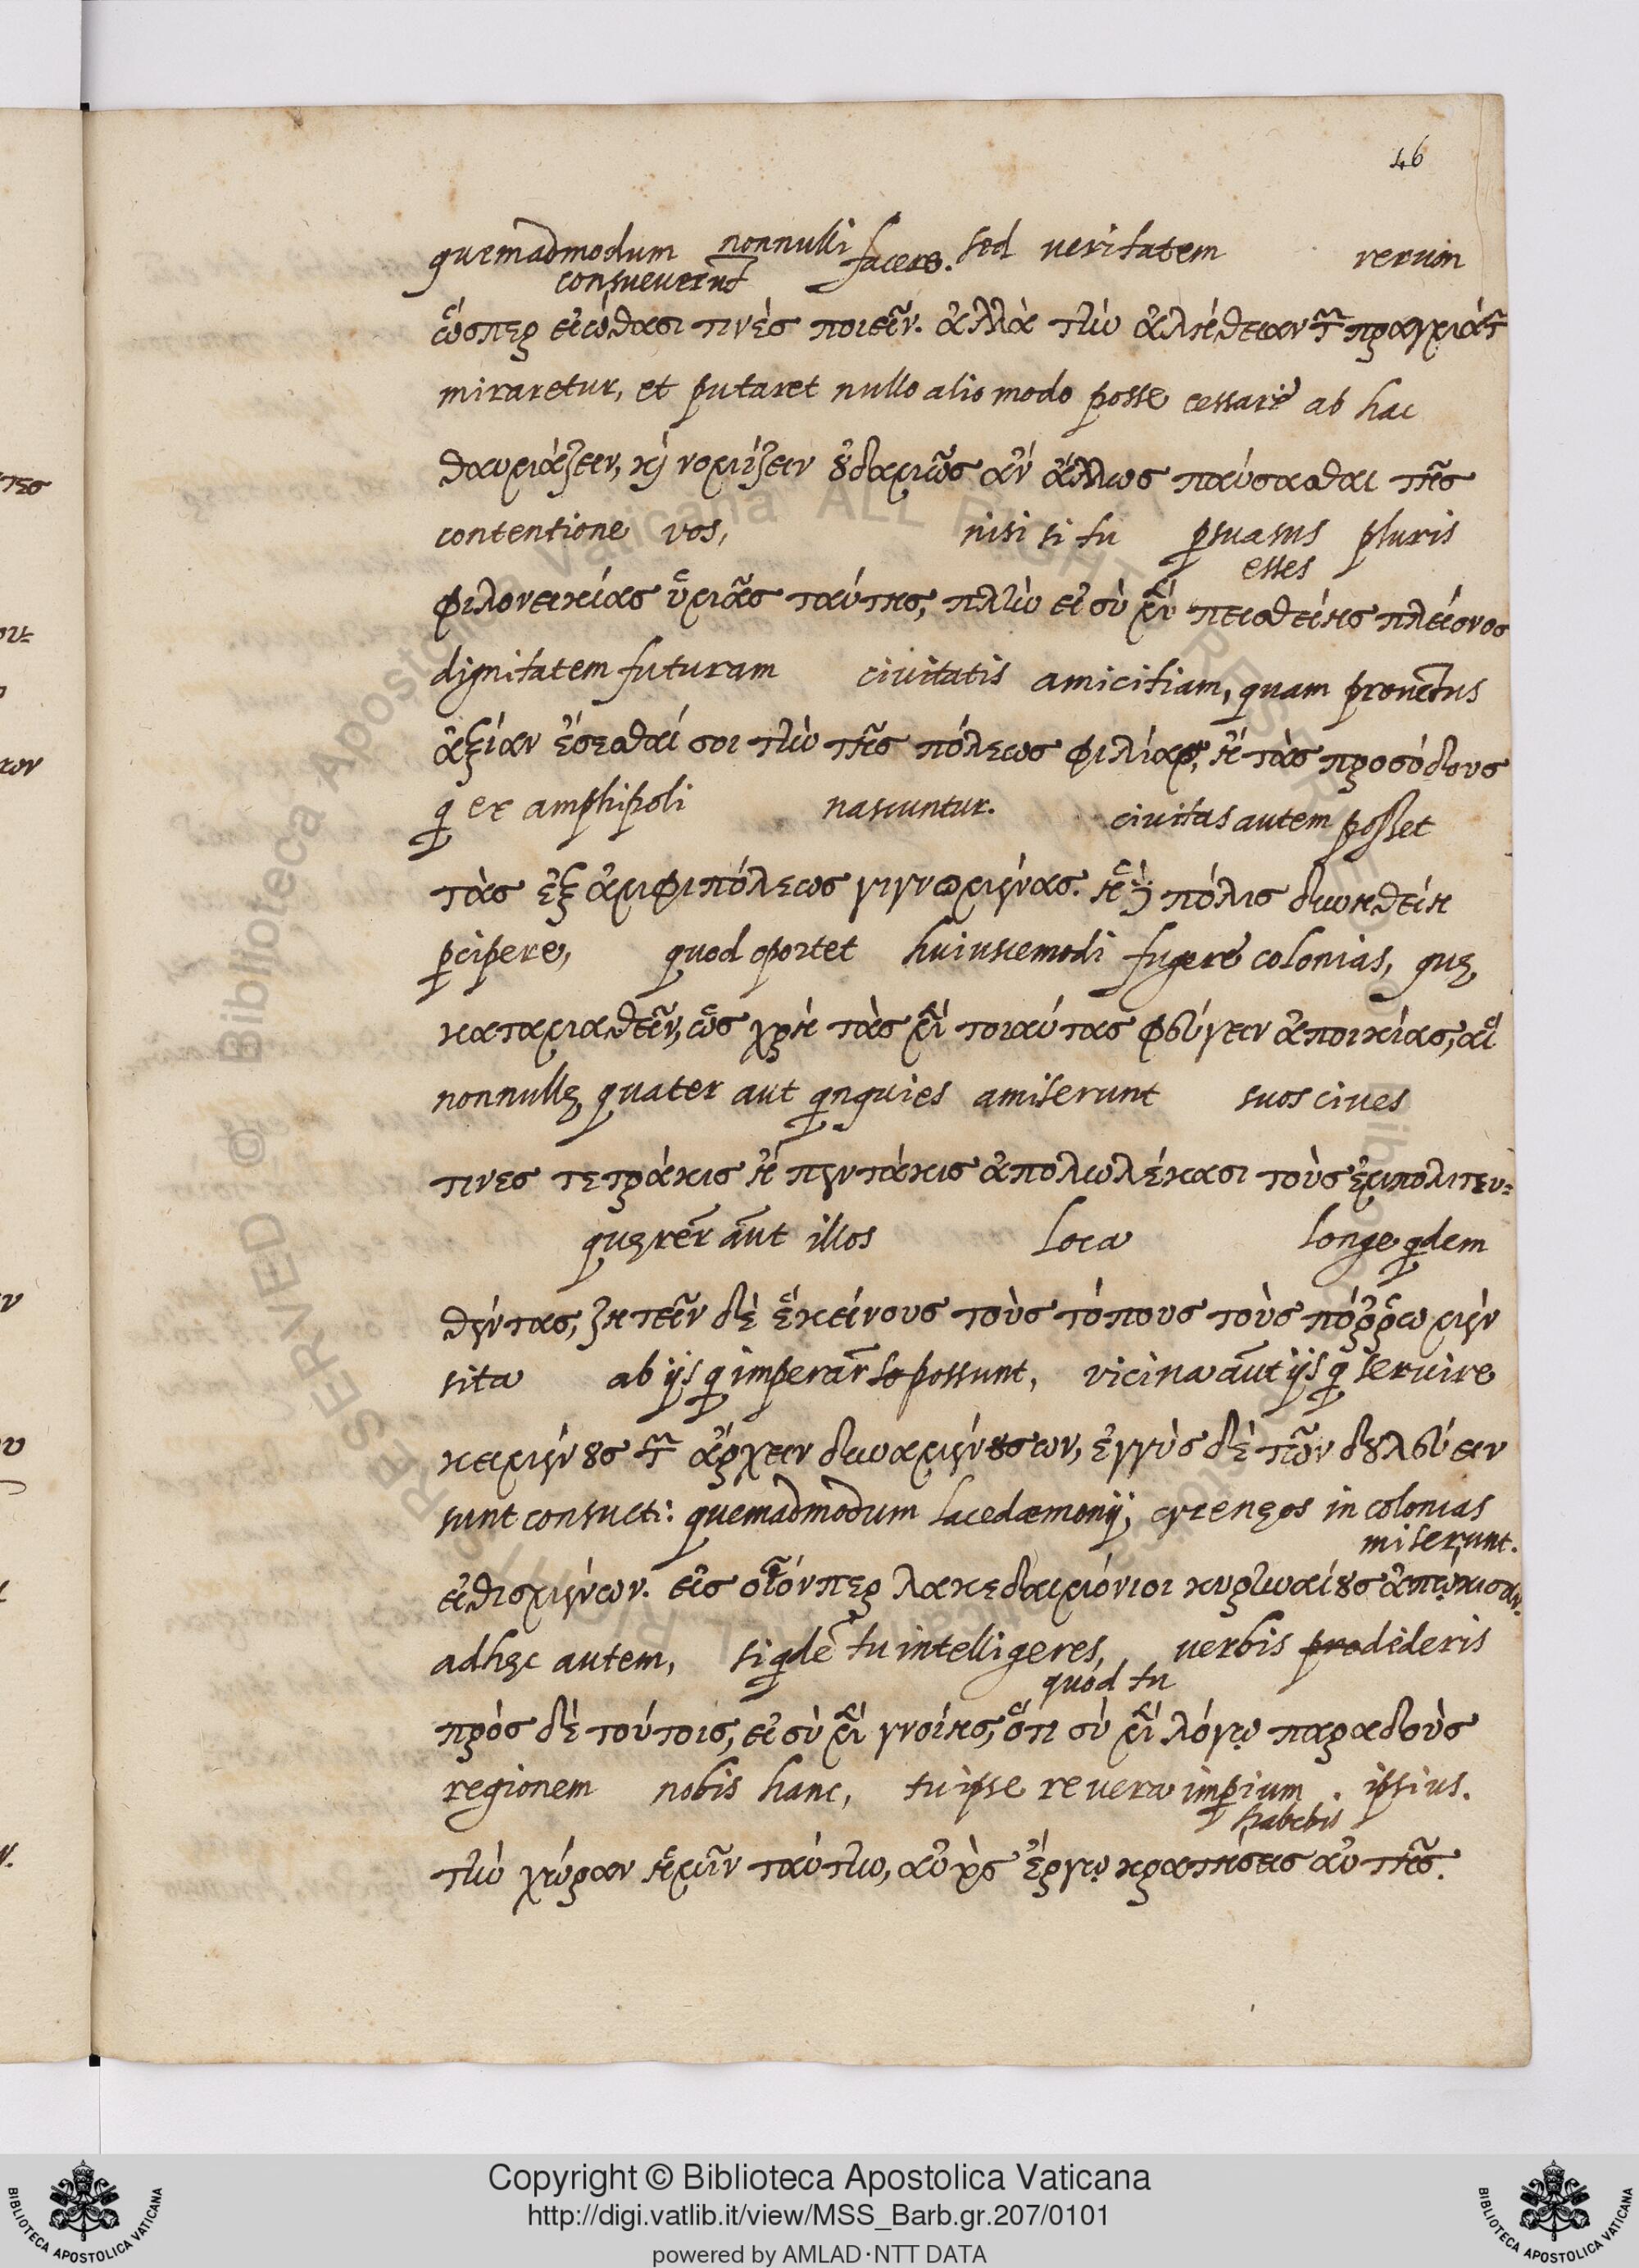 46
quemadmodum nonnulli facere. sed ueritatem rerum
consueuerũt
ὥσπερ εἰώθασι τινὲς ποιεῖν. ἀλλὰ τὴν ἀλήθειαν τῶν πραγμάτων
miraretur, et putaret nullo alio modo posse cessare ab hac
θαυμάζειν, καὶ νομίζειν οὐδαμῶς ἂν ἄλλως παύσασθαι τῆς
contentione vos, nisi si tu psuasus pluris
esses
φιλονεικίας ὑμᾶς ταύτης, πλὴν εἰ σὺ μὲν πεισθείης πλείονος
dignitatem futuram ciuitatis amicitiam, quam prouẽtus
ἀξίαν ἔσεσθαί σοι τὴν τῆς πόλεως φιλίαν, ἢ τὰς προσόδους
q ex amphipoli nascuntur. ciuitas autem posset
τὰς ἐξ ἀμφιπόλεως γιγνομένας. ἡ δὲ πόλις δυνηθείη
pcipere, quod oportet huiuscemodi fugere colonias, quę
καταμαθεῖν, ὡς χρὴ τὰς μὲν τοιαύτας φεύγειν ἀποικίας, αἵ
nonnullę quater aut qnquies amiserunt suos ciues
τινες τετράκις ἢ πεντάκις ἀπολωλέκασι τοὺς ἐμπολιτευ=
quęrer̃ aũt illos loca longe qdem
θέντας, ζητεῖν δὲ ἐκείνους τοὺς τόπους τοὺς πόῤῥω μὲν
sita ab ijs q imperar̃ possunt, vicina aũt ijs q seruire
κειμένους τῶν ἄρχειν δυναμένων, ἐγγὺς δὲ τῶν δουλεύειν
sunt consueti: quemadmodum lacedæmonij, cyrenęos in colonias
miserunt.
εἰθισμένων. εἰς οἷόνπερ λακεδαιμόνιοι κυρηναίους ἀπῴκισαν.
ad hęc autem, si qdẽ tu intelligeres, uerbis dederis
quod tu
πρὸς δὲ τούτοις, εἰ σὺ μὲν γνοίης, ὅτι σὺ μὲν λόγῳ παραδοὺς
regionem nobis hanc, tu ipse re uera impium . ipsius.
habebis
τὴν χώραν ἡμῖν ταύτην, αὐτὸς ἔργῳ κρατήσεις αὐτῆς.
Copyright © Biblioteca Apostolica Vaticana
http://digi.vatlib.it/view/MSS_Barb.gr.207/0101
powered by AMLAD·NTT DATA
BIBLIOTECA APOSTOLICA VATICANA
BIBLIOTECA APOSTOLICA VATICANA